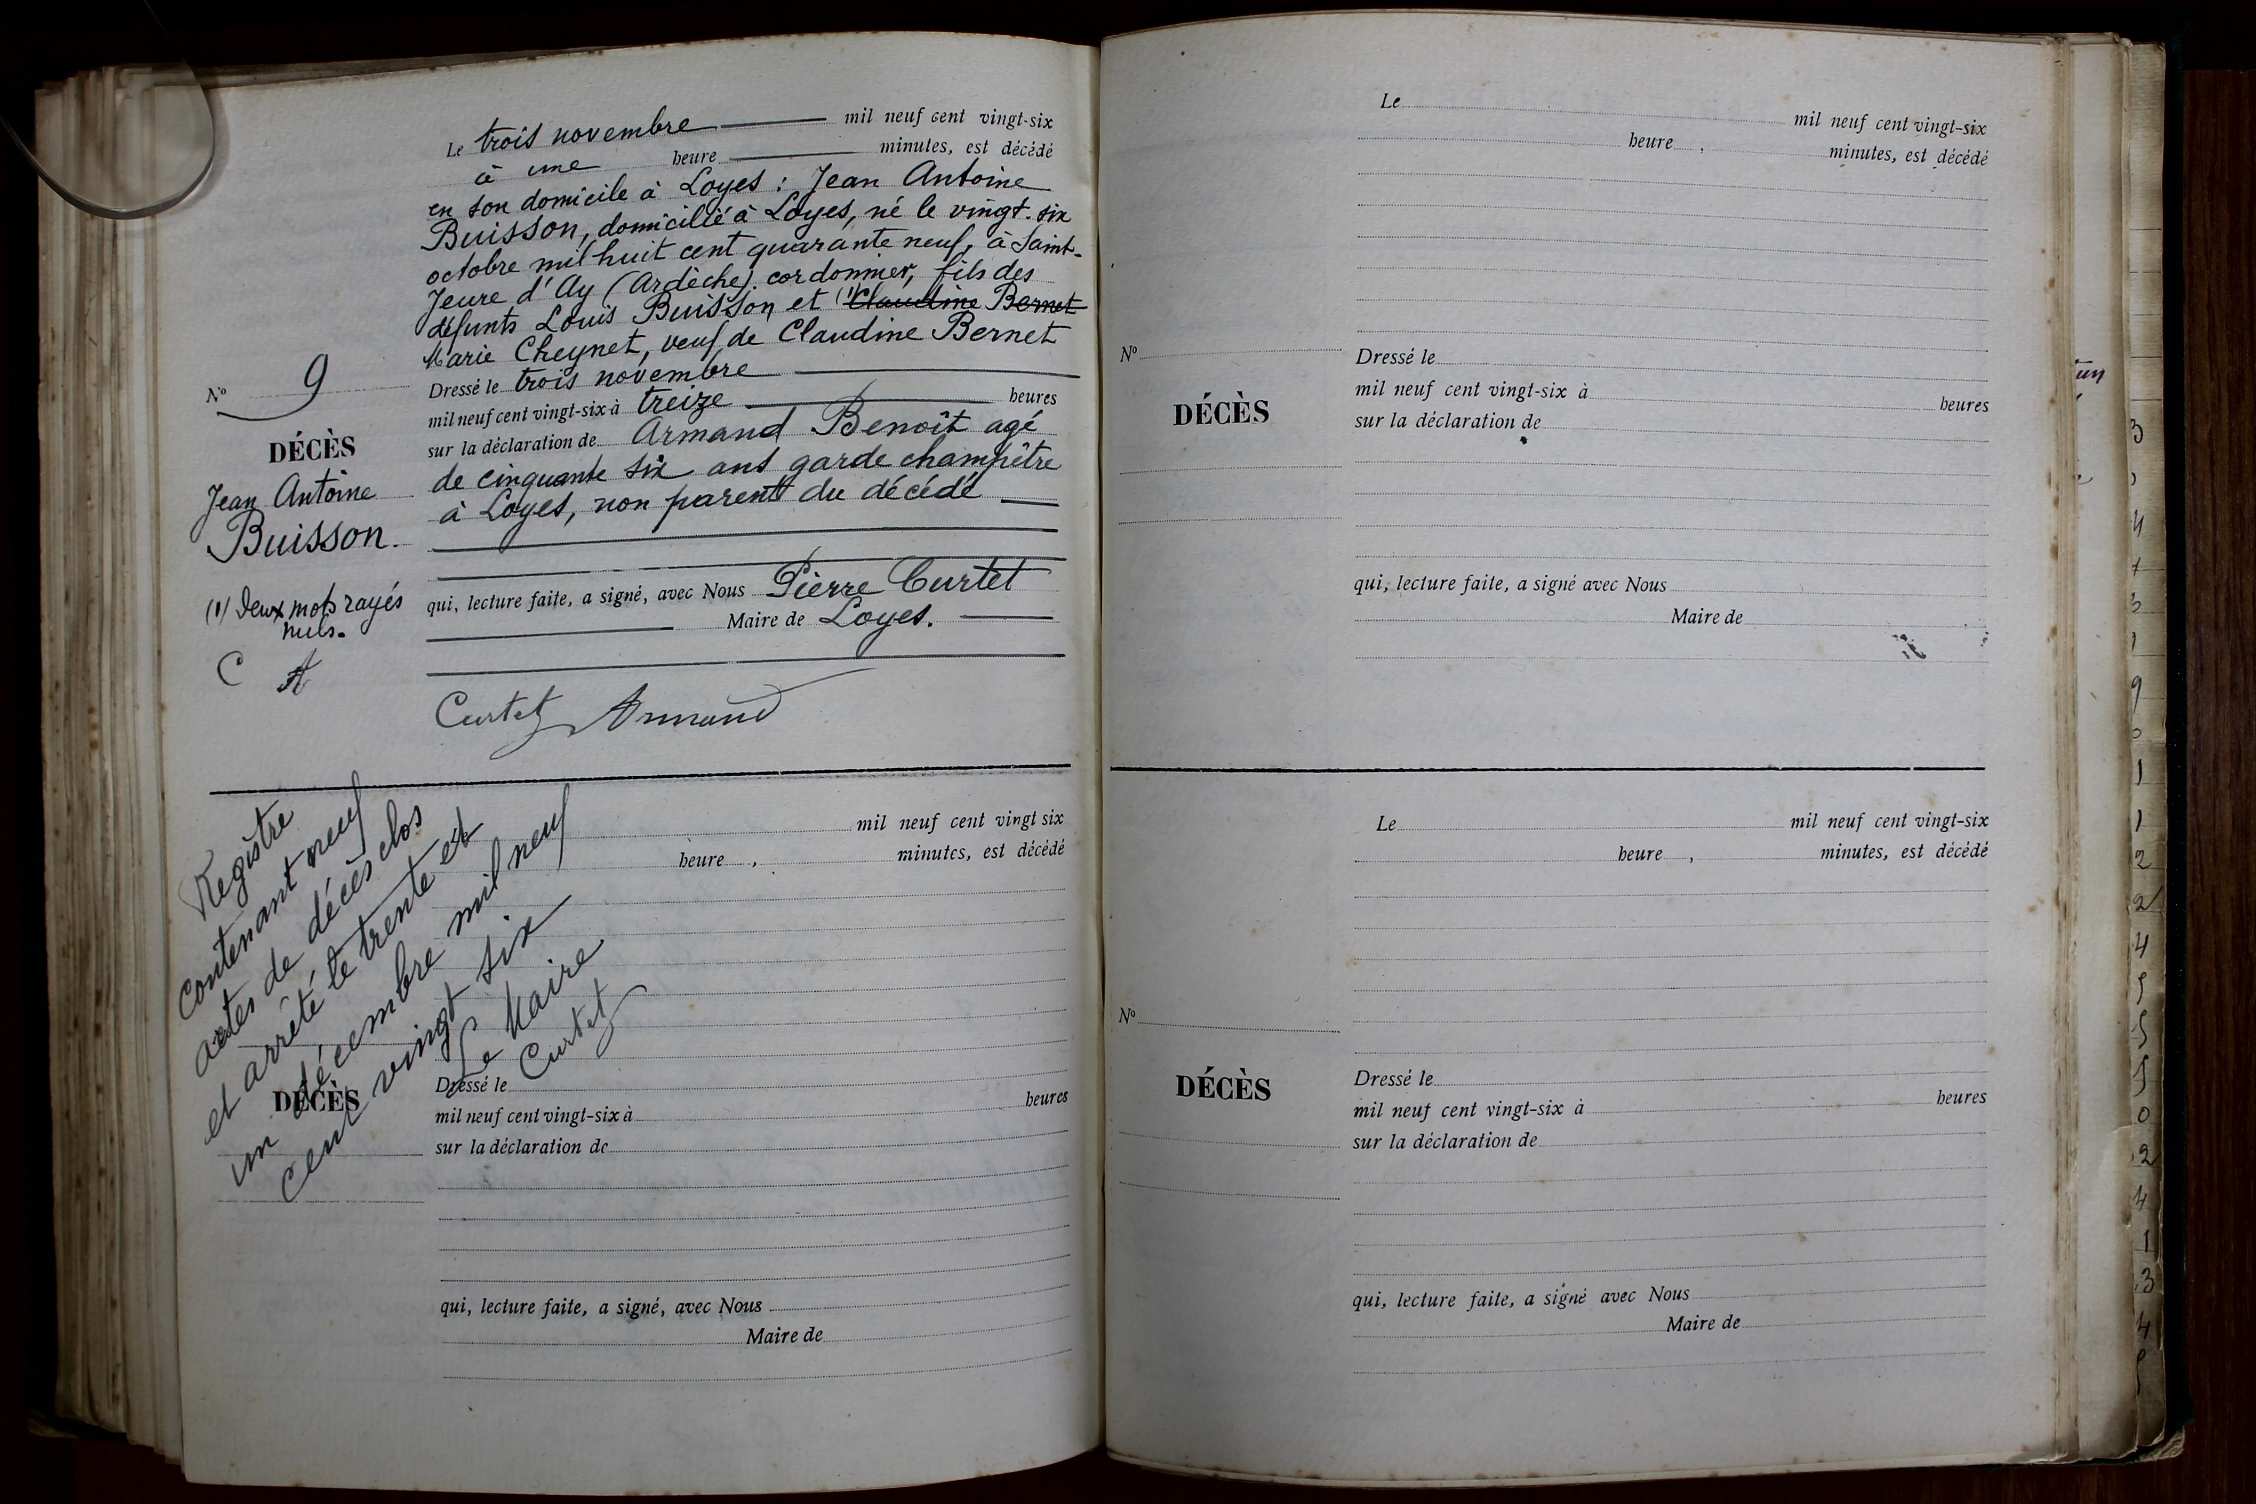 Le trois novembre mil neuf cent vingt-six
à une heure minutes, est décédé
en son domicile à Loyes : Jean Antoine
Buisson, domicilié à Loyes, né le vingt-six
octobre mil huit cent quarante neuf, à Saint-
Jeure d'Ay (Ardèche). cordonnier, fils des
défunts Louis Buisson et (1) Claudine Bernet
Marie Cheynet, veuf de Claudine Bernet
N° 9
Dressé le trois novembre
mil neuf cent vingt-six à treize heures
DÉCÈS
sur la déclaration de Armand Benoît agé
Jean Antoine
de cinquante six ans garde champêtre
Buisson.
à Loyes, non parent du décédé
(1) Deux mots rayés
nuls.
C A
qui, lecture faite, a signé, avec Nous Pierre Curtet
Maire de Loyes.
Curtet Armand
Registre
contenant neuf
actes de décès clos
et arrêté le trente et
un décembre mil neuf
cent vingt six
Le Maire
Curtet
mil neuf cent vingt six
heure , minutes, est décédé
DÉCÈS
Dressé le
mil neuf cent vingt-six à heures
sur la déclaration de
qui, lecture faite, a signé, avec Nous
Maire de
Le mil neuf cent vingt-six
heure , minutes, est décédé
N°
DÉCÈS
Dressé le
mil neuf cent vingt-six à heures
sur la déclaration de
qui, lecture faite, a signé avec Nous
Maire de
Le mil neuf cent vingt-six
heure , minutes, est décédé
N°
DÉCÈS
Dressé le
mil neuf cent vingt-six à heures
sur la déclaration de
qui, lecture faite, a signé avec Nous
Maire de
un
3
4
9
1
1
2
2
4
5
5
0
2
4
1
3
4